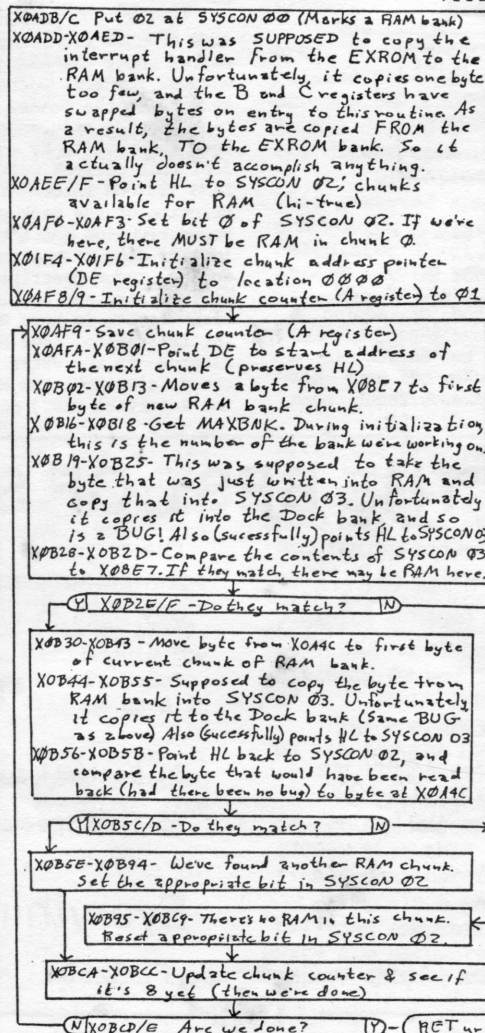 XØADB/C Put Ø2 at SYSCON ØØ (Marks a RAM bank)
XØADD-XØAED- This was SUPPOSED to copy the
interrupt handler from the EXROM to the
RAM bank. Unfortunately, it copies one byte
too few, and the B and C registers have
swapped bytes on entry to this routine. As
a result, the bytes are copied FROM the
RAM bank, TO the EXROM bank. So it
actually doesn't accomplish anything.
XOAEE/F-Point HL to SYSCON Ø2; chunks
available for RAM (hi-true)
XØAFØ-XØAF3-Set bit Ø of SYSCON Ø2. If we're
here, there MUST be RAM in chunk Ø.
XØ1F4-XØ1F6-Initialize chunk address pointer
(DE register) to location ØØØØ
XØAF8/9-Initialize chunk counter (A register) to Ø1
XØAF9-Save chunk counter (A register)
XØAFA-XØBØ1-Point DE to start address of
the next chunk (preserves HL)
XØBØ2-XØB13-Moves a byte from XØ8E7 to first
byte of new RAM bank chunk.
XØB16-XØB18-Get MAXBNK. During initialization,
this is the number of the bank we're working on.
XØB19-XOB25- This was supposed to take the
byte that was just written into RAM and
copy that into SYSCON Ø3. Unfortunately
it copies it into the Dock bank and so
is a BUG! Also (sucessfully) points HL to SYSCON Ø3
XØB28-XOB2D-Compare the contents of SYSCON Ø3
to XØ8E7. If they match there may be RAM here.
Y XØB2E/F -Do they match? N
XØB3Ø-XOB43-Move byte from XOA4C to first byte
of current chunk of RAM bank.
XOB44-XOB55- Supposed to copy the byte from
RAM bank into SYSCON Ø3. Unfortunately
it copies it to the Dock bank (Same BUG
as above) Also (sucessfully) points HL to SYSCON Ø3
XØB56-XOB5B-Point HL back to SYSCON Ø2, and
compare the byte that would have been read
back (had there been no bug) to byte at XØA4C
Y XOB5C/D -Do they match? N
XØB5E-XØB94- We've found another RAM chunk.
Set the appropriate bit in SYSCON Ø2
XØB95-XØBC9-There's no RAM in this chunk.
Reset appropriate bit in SYSCON Ø2.
XOBCA-XOBCC-Update chunk counter & see if
it's 8 yet (then we're done)
N XOBCD/E Are we done? Y